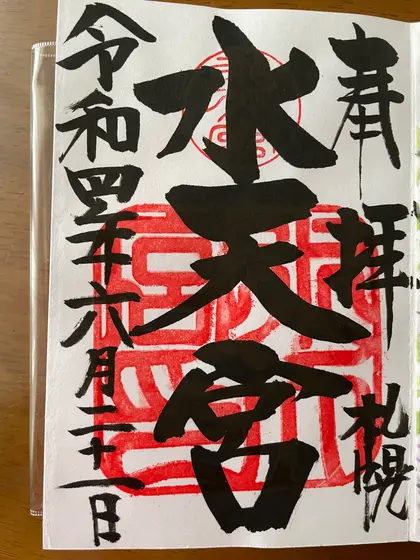 奉拝
札幌
水天宮
令和四年六月二十一日